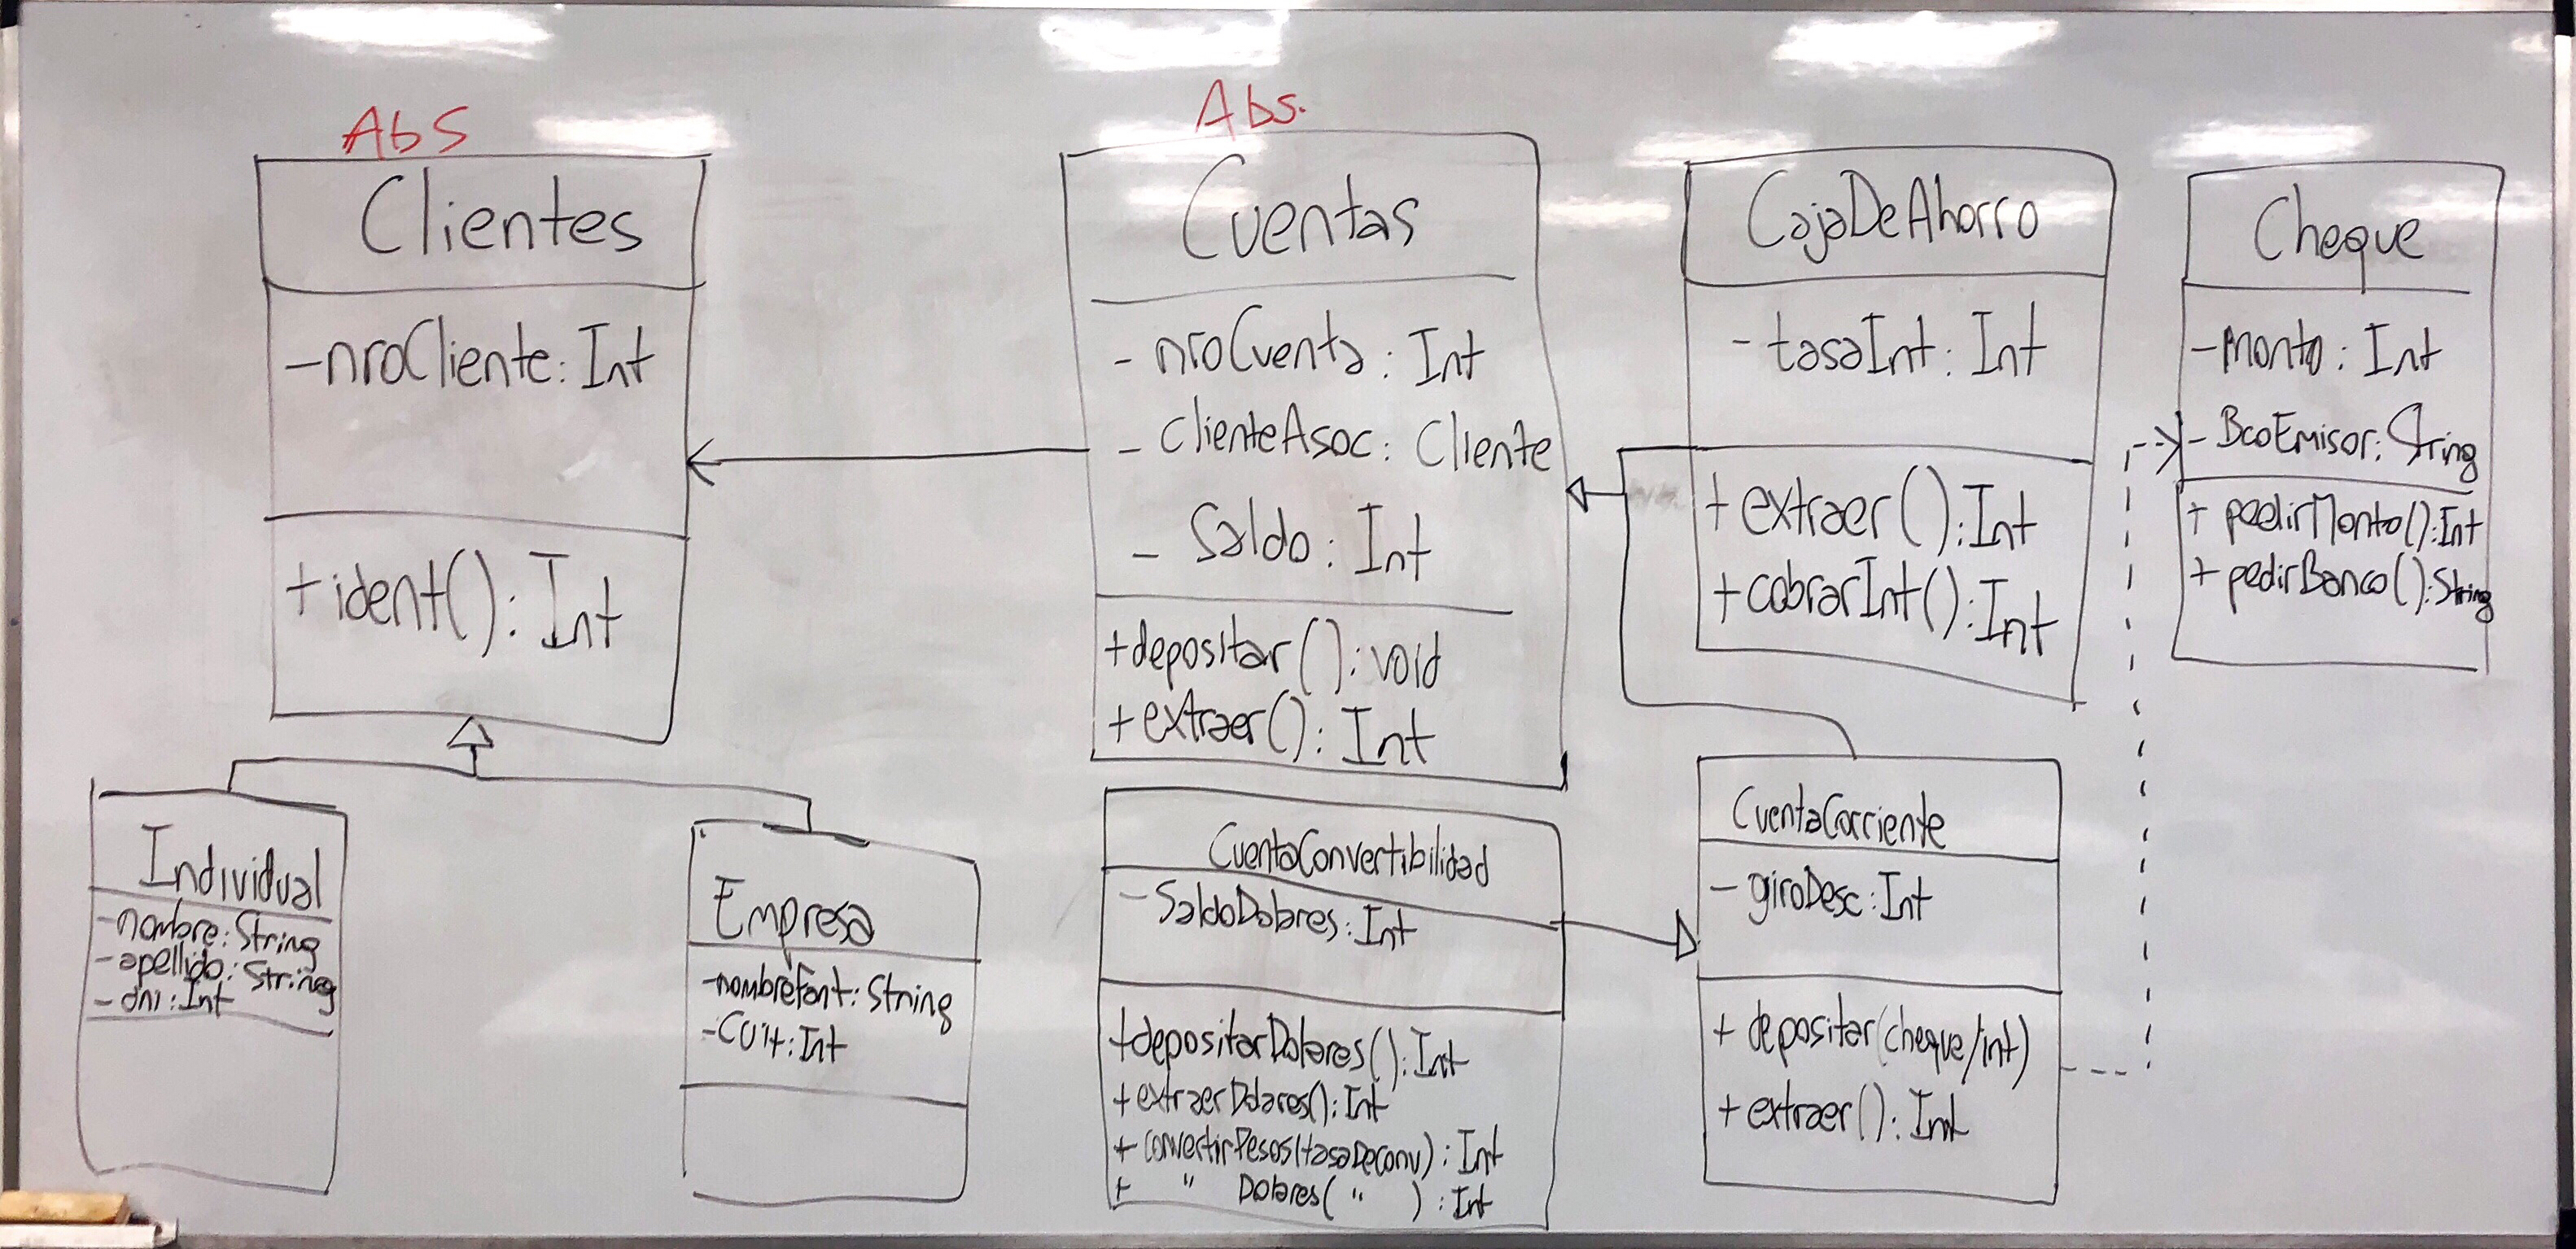 AbS
Clientes
-nroCliente: Int
+ident(): Int
Abs.
Cuentas
- nroCuenta: Int
- ClienteAsoc: Cliente
- Saldo: Int
+depositar(): void
+extraer(): Int
CajaDeAhorro
- tasaInt: Int
+extraer(): Int
+cobrarInt(): Int
Cheque
-Monto: Int
- BcoEmisor: String
+ pedirMonto(): Int
+ pedirBanco(): String
Individual
-nombre: String
-apellido: String
- dni: Int
Empresa
-nombreFant: String
-CUit: Int
CuentaConvertibilidad
- SaldoDolares: Int
+depositarDolares(): Int
+extraerDolares(): Int
+ convertirPesos(tasaDeConv): Int
+ " Dolares( " ): Int
CuentaCorriente
- giroDesc: Int
+ depositar(cheque/int)
+ extraer(): Int